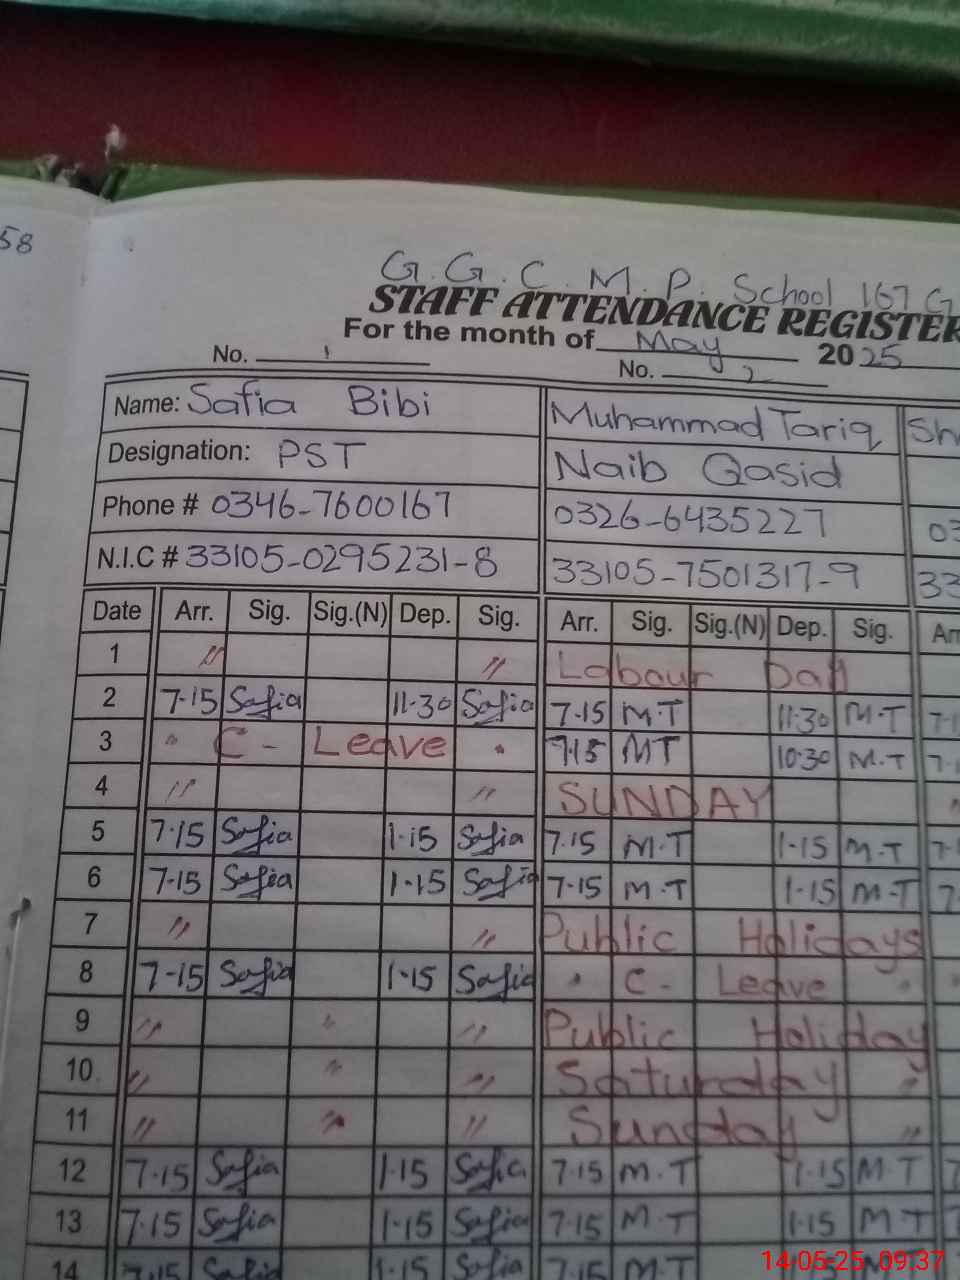 58
G.G.C.M.P. School 167 G
STAFF ATTENDANCE REGISTER
For the month of May 2025
No. 1 No. 2
Name: Safia Bibi Muhammad Tariq Sh
Designation: PST Naib Qasid
Phone # 0346-7600167 0326-6435227 03
N.I.C # 33105-0295231-8 33105-7501317-9 33
Date Arr. Sig. Sig.(N) Dep. Sig. Arr. Sig. Sig.(N) Dep. Sig. Arr
1 " " Labour Day
2 7-15 Safia 11-30 Safia 7-15 M.T 11:30 M.T 7-1
3 " C- Leave " 7-15 MT 10:30 M.T 7-
4 " " SUNDAY "
5 7-15 Safia 1-15 Safia 7-15 M.T 1-15 M.T 7-1
6 7-15 Safia 1-15 Safia 7-15 M.T 1-15 M.T 7-
7 " " Public Holidays
8 7-15 Safia 1-15 Safia " C- Leave " "
9 " " " Public Holiday
10 " " " Saturday "
11 " " " Sunday "
12 7-15 Safia 1-15 Safia 7-15 M.T 1-15 M.T 7
13 7-15 Safia 1-15 Safia 7-15 M.T 1-15 M.T 7
14 7-15 Safia 1-15 Safia 7-15 M.T
14-05-25 09:37